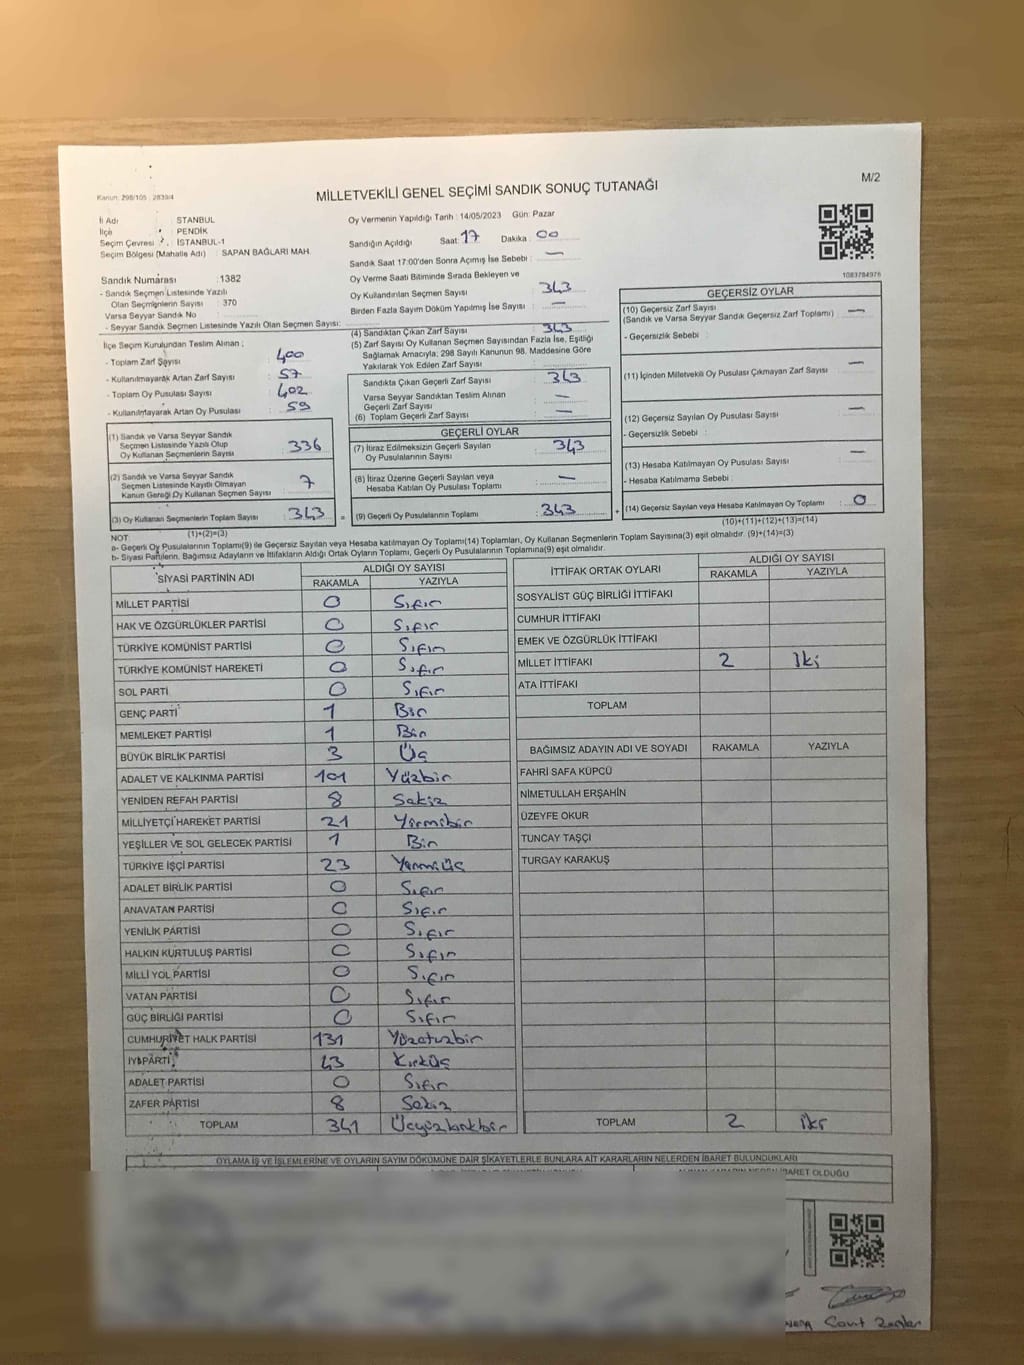 M/2
Kanun: 298/105 : 2839/4
MİLLETVEKİLİ GENEL SEÇİMİ SANDIK SONUÇ TUTANAĞI
İl Adı : STANBUL
İlçe : PENDİK
Seçim Çevresi : İSTANBUL-1
Seçim Bölgesi (Mahalle Adı) : SAPAN BAĞLARI MAH.
Sandık Numarası : 1382
- Sandık Seçmen Listesinde Yazılı
Olan Seçmenlerin Sayısı : 370
Varsa Seyyar Sandık No :
- Seyyar Sandık Seçmen Listesinde Yazılı Olan Seçmen Sayısı:
Oy Vermenin Yapıldığı Tarih : 14/05/2023 Gün: Pazar
Sandığın Açıldığı Saat: 17 Dakika : 00
Sandık Saat 17:00'den Sonra Açımış İse Sebebi : —
Oy Verme Saati Bitiminde Sırada Bekleyen ve
Oy Kullandırılan Seçmen Sayısı : 343
Birden Fazla Sayım Döküm Yapılmış İse Sayısı : —
1083784976
İlçe Seçim Kurulundan Teslim Alınan ;
- Toplam Zarf Sayısı : 400
- Kullanılmayarak Artan Zarf Sayısı : 57
- Toplam Oy Pusulası Sayısı : 402
- Kullanılmayarak Artan Oy Pusulası : 59
(1) Sandık ve Varsa Seyyar Sandık
Seçmen Listesinde Yazılı Olup
Oy Kullanan Seçmenlerin Sayısı : 336
(2) Sandık ve Varsa Seyyar Sandık
Seçmen Listesinde Kayıtlı Olmayan
Kanun Gereği Oy Kullanan Seçmen Sayısı : 7
(3) Oy Kullanan Seçmenlerin Toplam Sayısı : 343
(1)+(2)=(3)
(4) Sandıktan Çıkan Zarf Sayısı : 343
(5) Zarf Sayısı Oy Kullanan Seçmen Sayısından Fazla İse, Eşitliği
Sağlamak Amacıyla, 298 Sayılı Kanunun 98. Maddesine Göre
Yakılarak Yok Edilen Zarf Sayısı :
Sandıkta Çıkan Geçerli Zarf Sayısı : 343
Varsa Seyyar Sandıktan Teslim Alınan
Geçerli Zarf Sayısı : —
(6) Toplam Geçerli Zarf Sayısı : —
GEÇERLİ OYLAR
(7) İtiraz Edilmeksizin Geçerli Sayılan
Oy Pusulalarının Sayısı : 343
(8) İtiraz Üzerine Geçerli Sayılan veya
Hesaba Katılan Oy Pusulası Toplamı : —
= (9) Geçerli Oy Pusulalarının Toplamı : 343 +
GEÇERSİZ OYLAR
(10) Geçersiz Zarf Sayısı : —
(Sandık ve Varsa Seyyar Sandık Geçersiz Zarf Toplamı)
- Geçersizlik Sebebi :
(11) İçinden Milletvekili Oy Pusulası Çıkmayan Zarf Sayısı : —
(12) Geçersiz Sayılan Oy Pusulası Sayısı : —
- Geçersizlik Sebebi :
(13) Hesaba Katılmayan Oy Pusulası Sayısı : —
- Hesaba Katılmama Sebebi :
(14) Geçersiz Sayılan veya Hesaba Katılmayan Oy Toplamı : 0
(10)+(11)+(12)+(13)=(14)
NOT:
a- Geçerli Oy Pusulalarının Toplamı(9) ile Geçersiz Sayılan veya Hesaba katılmayan Oy Toplamı(14) Toplamları, Oy Kullanan Seçmenlerin Toplam Sayısına(3) eşit olmalıdır. (9)+(14)=(3)
b- Siyasi Partilerin, Bağımsız Adayların ve İttifakların Aldığı Ortak Oyların Toplamı, Geçerli Oy Pusulalarının Toplamına(9) eşit olmalıdır.
SİYASİ PARTİNİN ADI ALDIĞI OY SAYISI
RAKAMLA YAZIYLA
MİLLET PARTİSİ 0 Sıfır
HAK VE ÖZGÜRLÜKLER PARTİSİ 0 Sıfır
TÜRKİYE KOMÜNİST PARTİSİ 0 Sıfır
TÜRKİYE KOMÜNİST HAREKETİ 0 Sıfır
SOL PARTİ 0 Sıfır
GENÇ PARTİ 1 Bir
MEMLEKET PARTİSİ 1 Bir
BÜYÜK BİRLİK PARTİSİ 3 Üç
ADALET VE KALKINMA PARTİSİ 101 Yüzbir
YENİDEN REFAH PARTİSİ 8 Sekiz
MİLLİYETÇİ HAREKET PARTİSİ 21 Yirmibir
YEŞİLLER VE SOL GELECEK PARTİSİ 1 Bir
TÜRKİYE İŞÇİ PARTİSİ 23 Yirmiüç
ADALET BİRLİK PARTİSİ 0 Sıfır
ANAVATAN PARTİSİ 0 Sıfır
YENİLİK PARTİSİ 0 Sıfır
HALKIN KURTULUŞ PARTİSİ 0 Sıfır
MİLLİ YOL PARTİSİ 0 Sıfır
VATAN PARTİSİ 0 Sıfır
GÜÇ BİRLİĞİ PARTİSİ 0 Sıfır
CUMHURİYET HALK PARTİSİ 131 Yüzotuzbir
İYİ PARTİ 43 Kırküç
ADALET PARTİSİ 0 Sıfır
ZAFER PARTİSİ 8 Sekiz
TOPLAM 341 Üçyüzkırkbir
İTTİFAK ORTAK OYLARI ALDIĞI OY SAYISI
RAKAMLA YAZIYLA
SOSYALİST GÜÇ BİRLİĞİ İTTİFAKI
CUMHUR İTTİFAKI
EMEK VE ÖZGÜRLÜK İTTİFAKI
MİLLET İTTİFAKI 2 İki
ATA İTTİFAKI
TOPLAM
BAĞIMSIZ ADAYIN ADI VE SOYADI RAKAMLA YAZIYLA
FAHRİ SAFA KÜPCÜ
NİMETULLAH ERŞAHİN
ÜZEYFE OKUR
TUNCAY TAŞÇI
TURGAY KARAKUŞ
TOPLAM 2 iki
OYLAMA İŞ VE İŞLEMLERİNE VE OYLARIN SAYIM DÖKÜMÜNE DAİR ŞİKAYETLERLE BUNLARA AİT KARARLARIN NELERDEN İBARET BULUNDUKLARI
İBARET OLDUĞU